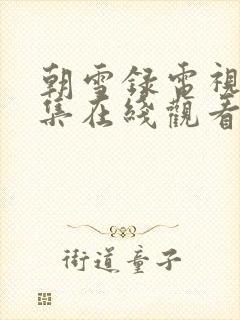 朝雪録電視
集在綫觀看
街道童子